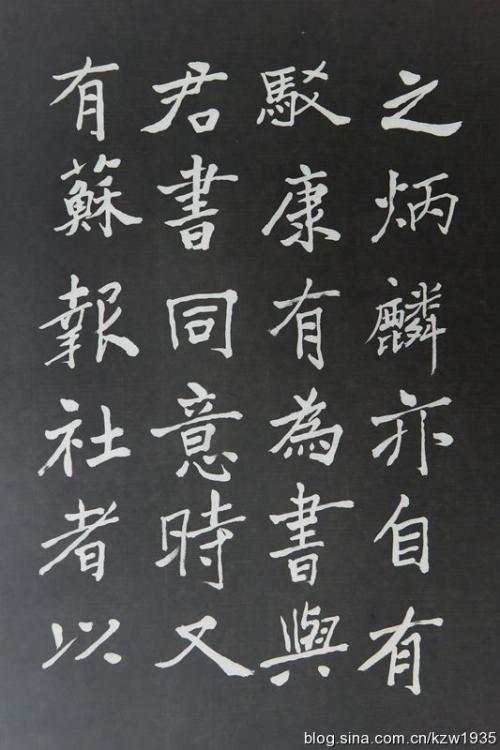 之炳麟亦自有
駁康有為書與
君書同意時又
有蘇報社者以
blog.sina.com.cn/kzw1935